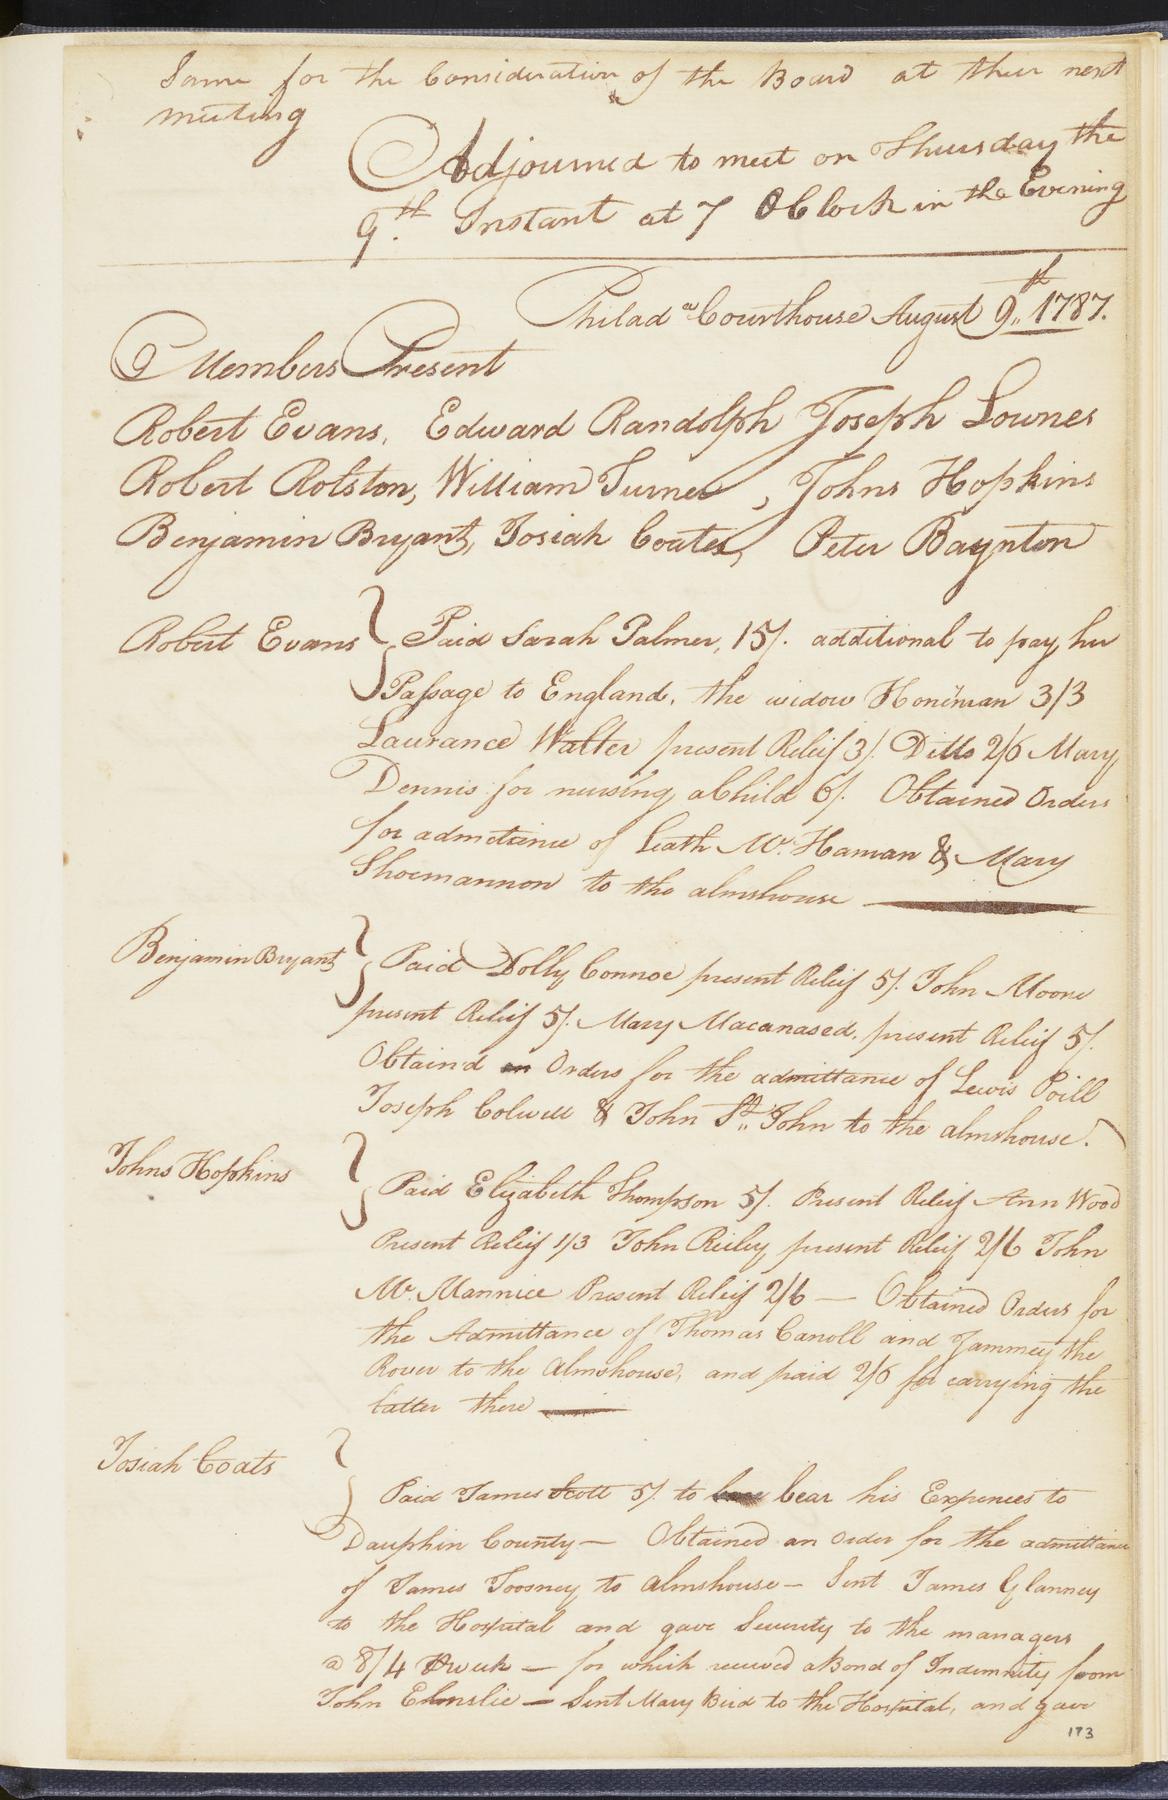 Same for the Consideration of the Board at their next
meeting
Adjourned to meet on Thursday the
9th. Instant at 7 OClock in the Evening
Philada Courthouse August 9th 1787.
Members Present
Robert Evans, Edward Randolph Joseph Lownes
Robert Rolston, William Turner, Johns Hopkins
Benjamin Bryant, Josiah Coates, Peter Baynton
Robert Evans } Paid Sarah Palmer, 15/. additional to pay her
Passage to England, the widow Honeman 3/3
Laurance Walter present Releif 3/. Ditto 2/6 Mary
Dennis for nursing a Child 6/. Obtained Orders
for admetance of Leath Mc. Haman & Mary
Shoemannon to the almshouse
Benjamin Bryant } Paid Dolly Connoe present Releif 5/. John Moore
present Releif 5/. Mary Macanased. present Releif 5/.
Obtain'd an Orders for the admittance of Lewis Poill
Joseph Colwell & John St. John to the almshouse.
Johns Hopkins } Paid Elizabeth Thompson 5/. Present Releif Ann Wood
Present Releif 1/3 John Reiley present Releif 2/6 John
Mc. Mannice Present Releif 2/6 — Obtained Orders for
the Admittance of Thomas Caroll and Jammey the
Rover to the Almshouse, and paid 2/6 for carrying the
latter there
Josiah Coats } Paid James Scott 5/. to bear his Expences to
Dauphin County — Obtained an order for the admittance
of James Toosney to almshouse — Sent James Glanney
to the Hospital and gave Security to the managers
a 8/4 week — for which received a Bond of Indemnity from
John Elmslie — Sent Mary Bird to the Hospital, and gave
173